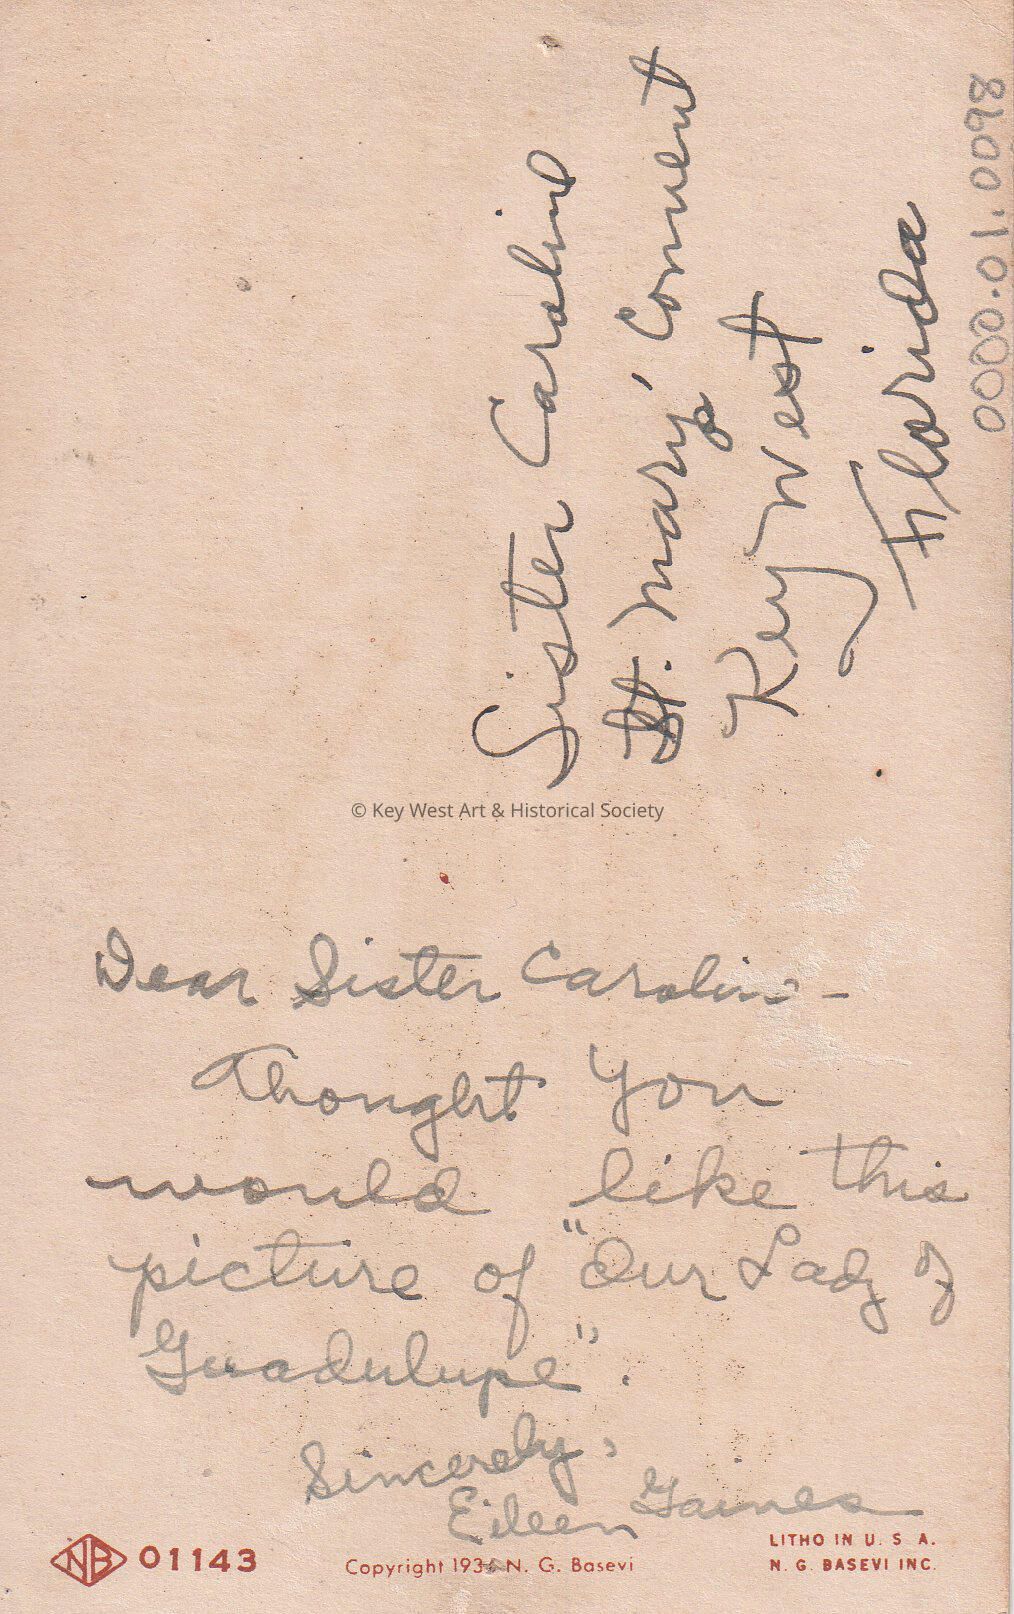 Sister Caroline
St. Mary's Convent
Key West
Florida
0000.01.0098
© Key West Art & Historical Society
Dear Sister Carolin -
Thought you
would like this
picture of "Our Lady of
Guadulupe".
Sincerely,
Eileen Gaines
NB 01143
Copyright N. G. Basevi
LITHO IN U. S A.
N. G. BASEVI INC.